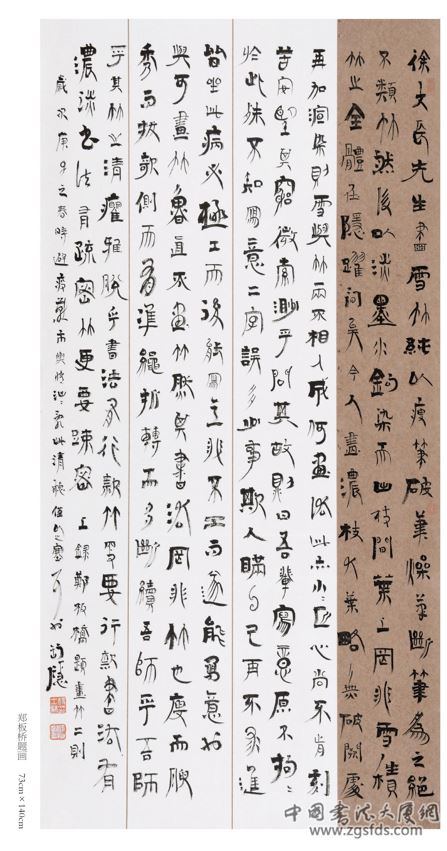 徐文長先生畫雪竹純以瘦筆破筆燥筆斷筆為之絕
不類竹然後以淡墨水鉤染而出枝間葉上罔非雪積
竹之全體在隱躍間矣今人畫濃枝大葉略無破闕處
再加渲染則雪與竹兩不相入成何畫法此亦小小匠心尚不肯刻
苦安望其窮微索渺乎問其故則曰吾輩寫意原不拘拘
於此殊不知寫意二字誤多少事欺人瞞自己再不求進
皆坐此病必極工而後能寫意非不工而遂能寫意也
與可畫竹魯直不畫竹然其書法罔非竹也瘦而腴
秀而拔欹側而有準繩折轉而多斷續吾師乎吾師
乎其竹之清癯雅脫乎書法有行款竹更要行款書法有
濃淡書法有疏密竹更要疎密 上錄鄭板橋題畫竹二則
歲次庚子之春時避疫
郑板桥题画 73cm×140cm
中国书法大厦网
www.zgsfds.com